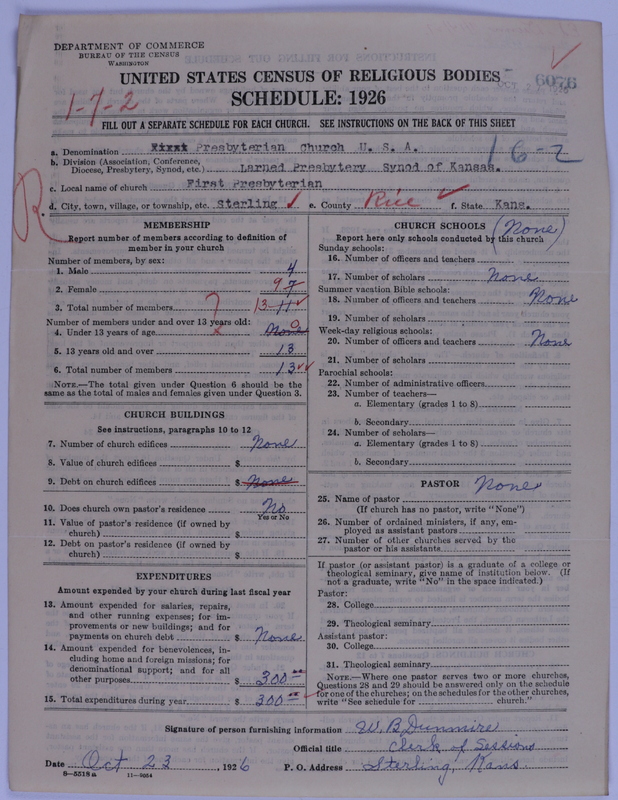 DEPARTMENT OF COMMERCE
BUREAU OF THE CENSUS
WASHINGTON
UNITED STATES CENSUS OF RELIGIOUS BODIES
SCHEDULE: 1926
6076
1-7-2
FILL OUT A SEPARATE SCHEDULE FOR EACH CHURCH. SEE INSTRUCTIONS ON THE BACK OF THIS SHEET
a. Denomination First Presbyterian Church U. S. A.
16-2
b. Division (Association, Conference, Diocese, Presbytery, Synod, etc.) Larned Presbytery Synod of Kansas.
c. Local name of church First Presbyterian
R
d. City, town, village, or township, etc. Sterling e. County Rice f. State Kans.
MEMBERSHIP
Report number of members according to definition of
member in your church
Number of members, by sex:
1. Male 4
2. Female 9 7
3. Total number of members ? 13 11
Number of members under and over 13 years old:
4. Under 13 years of age None 0
5. 13 years old and over 13
6. Total number of members 13
NOTE.—The total given under Question 6 should be the
same as the total of males and females given under Question 3.
CHURCH BUILDINGS
See instructions, paragraphs 10 to 12
7. Number of church edifices None
8. Value of church edifices $
9. Debt on church edifices $ None
10. Does church own pastor's residence No
Yes or No
11. Value of pastor's residence (if owned by
church) $
12. Debt on pastor's residence (if owned by
church) $
EXPENDITURES
Amount expended by your church during last fiscal year
13. Amount expended for salaries, repairs,
and other running expenses; for im-
provements or new buildings; and for
payments on church debt $ None
14. Amount expended for benevolences, in-
cluding home and foreign missions; for
denominational support; and for all
other purposes $ 300 00
15. Total expenditures during year $ 300 00
CHURCH SCHOOLS (None)
Report here only schools conducted by this church
Sunday schools:
16. Number of officers and teachers
17. Number of scholars None
Summer vacation Bible schools:
18. Number of officers and teachers None
19. Number of scholars
Week-day religious schools:
20. Number of officers and teachers None
21. Number of scholars
Parochial schools:
22. Number of administrative officers
23. Number of teachers—
a. Elementary (grades 1 to 8)
b. Secondary
24. Number of scholars—
a. Elementary (grades 1 to 8)
b. Secondary
PASTOR None
25. Name of pastor
(If church has no pastor, write "None")
26. Number of ordained ministers, if any, em-
ployed as assistant pastors
27. Number of other churches served by the
pastor or his assistants
If pastor (or assistant pastor) is a graduate of a college or
theological seminary, give name of institution below. (If
not a graduate, write "No" in the space indicated.)
Pastor:
28. College
29. Theological seminary
Assistant pastor:
30. College
31. Theological seminary
NOTE.—Where one pastor serves two or more churches,
Questions 28 and 29 should be answered only on the schedule
for one of the churches; on the schedules for the other churches,
write "See schedule for church."
Signature of person furnishing information W. B. Dunmire
Official title Clerk of Sessions
Date Oct 23, 1926 P. O. Address Sterling, Kans
8—5518 a 11—9034